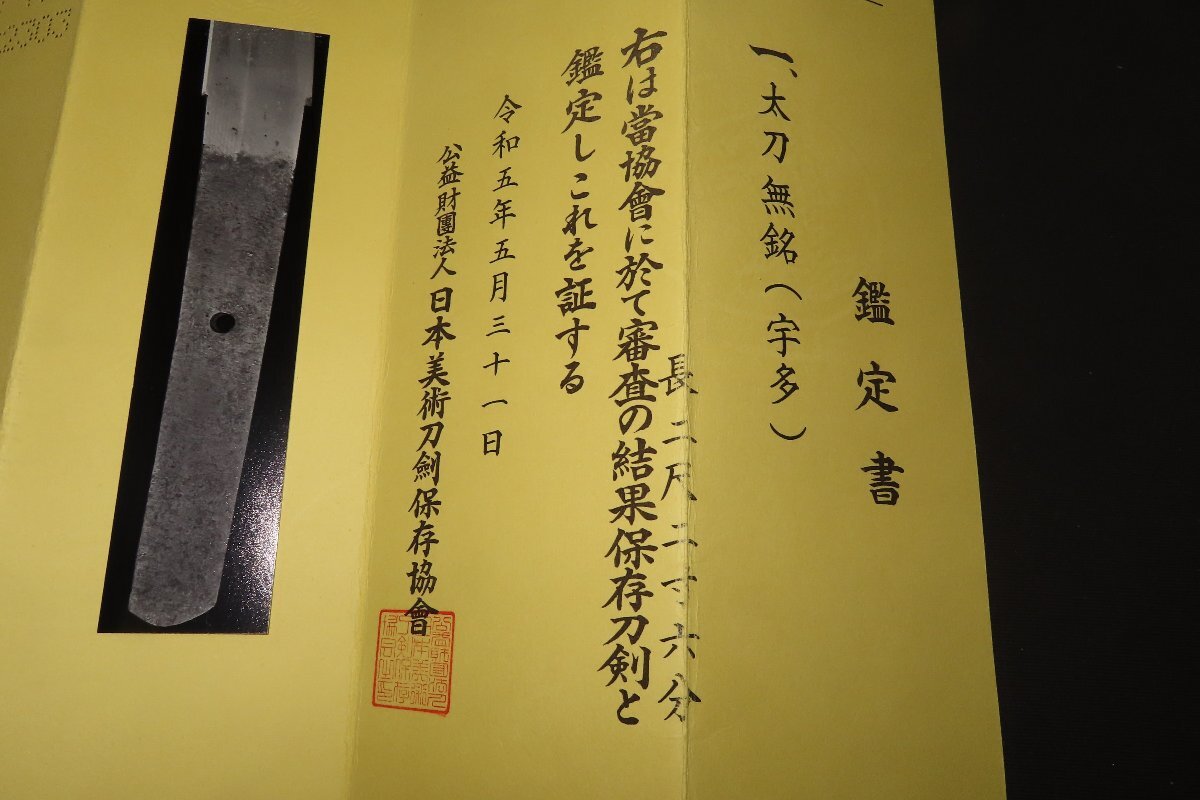 鑑定書
一、太刀無銘(宇多)
長二尺二寸六分
右は當協會に於て審査の結果保存刀剣と
鑑定しこれを証する
令和五年五月三十一日
公益財團法人日本美術刀劍保存協會